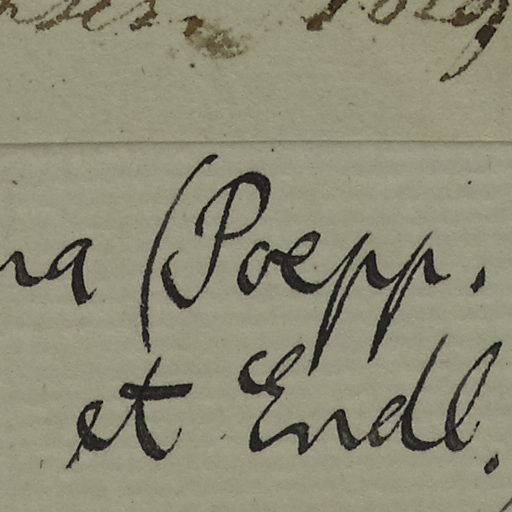 na (Poepp.
et Endl.